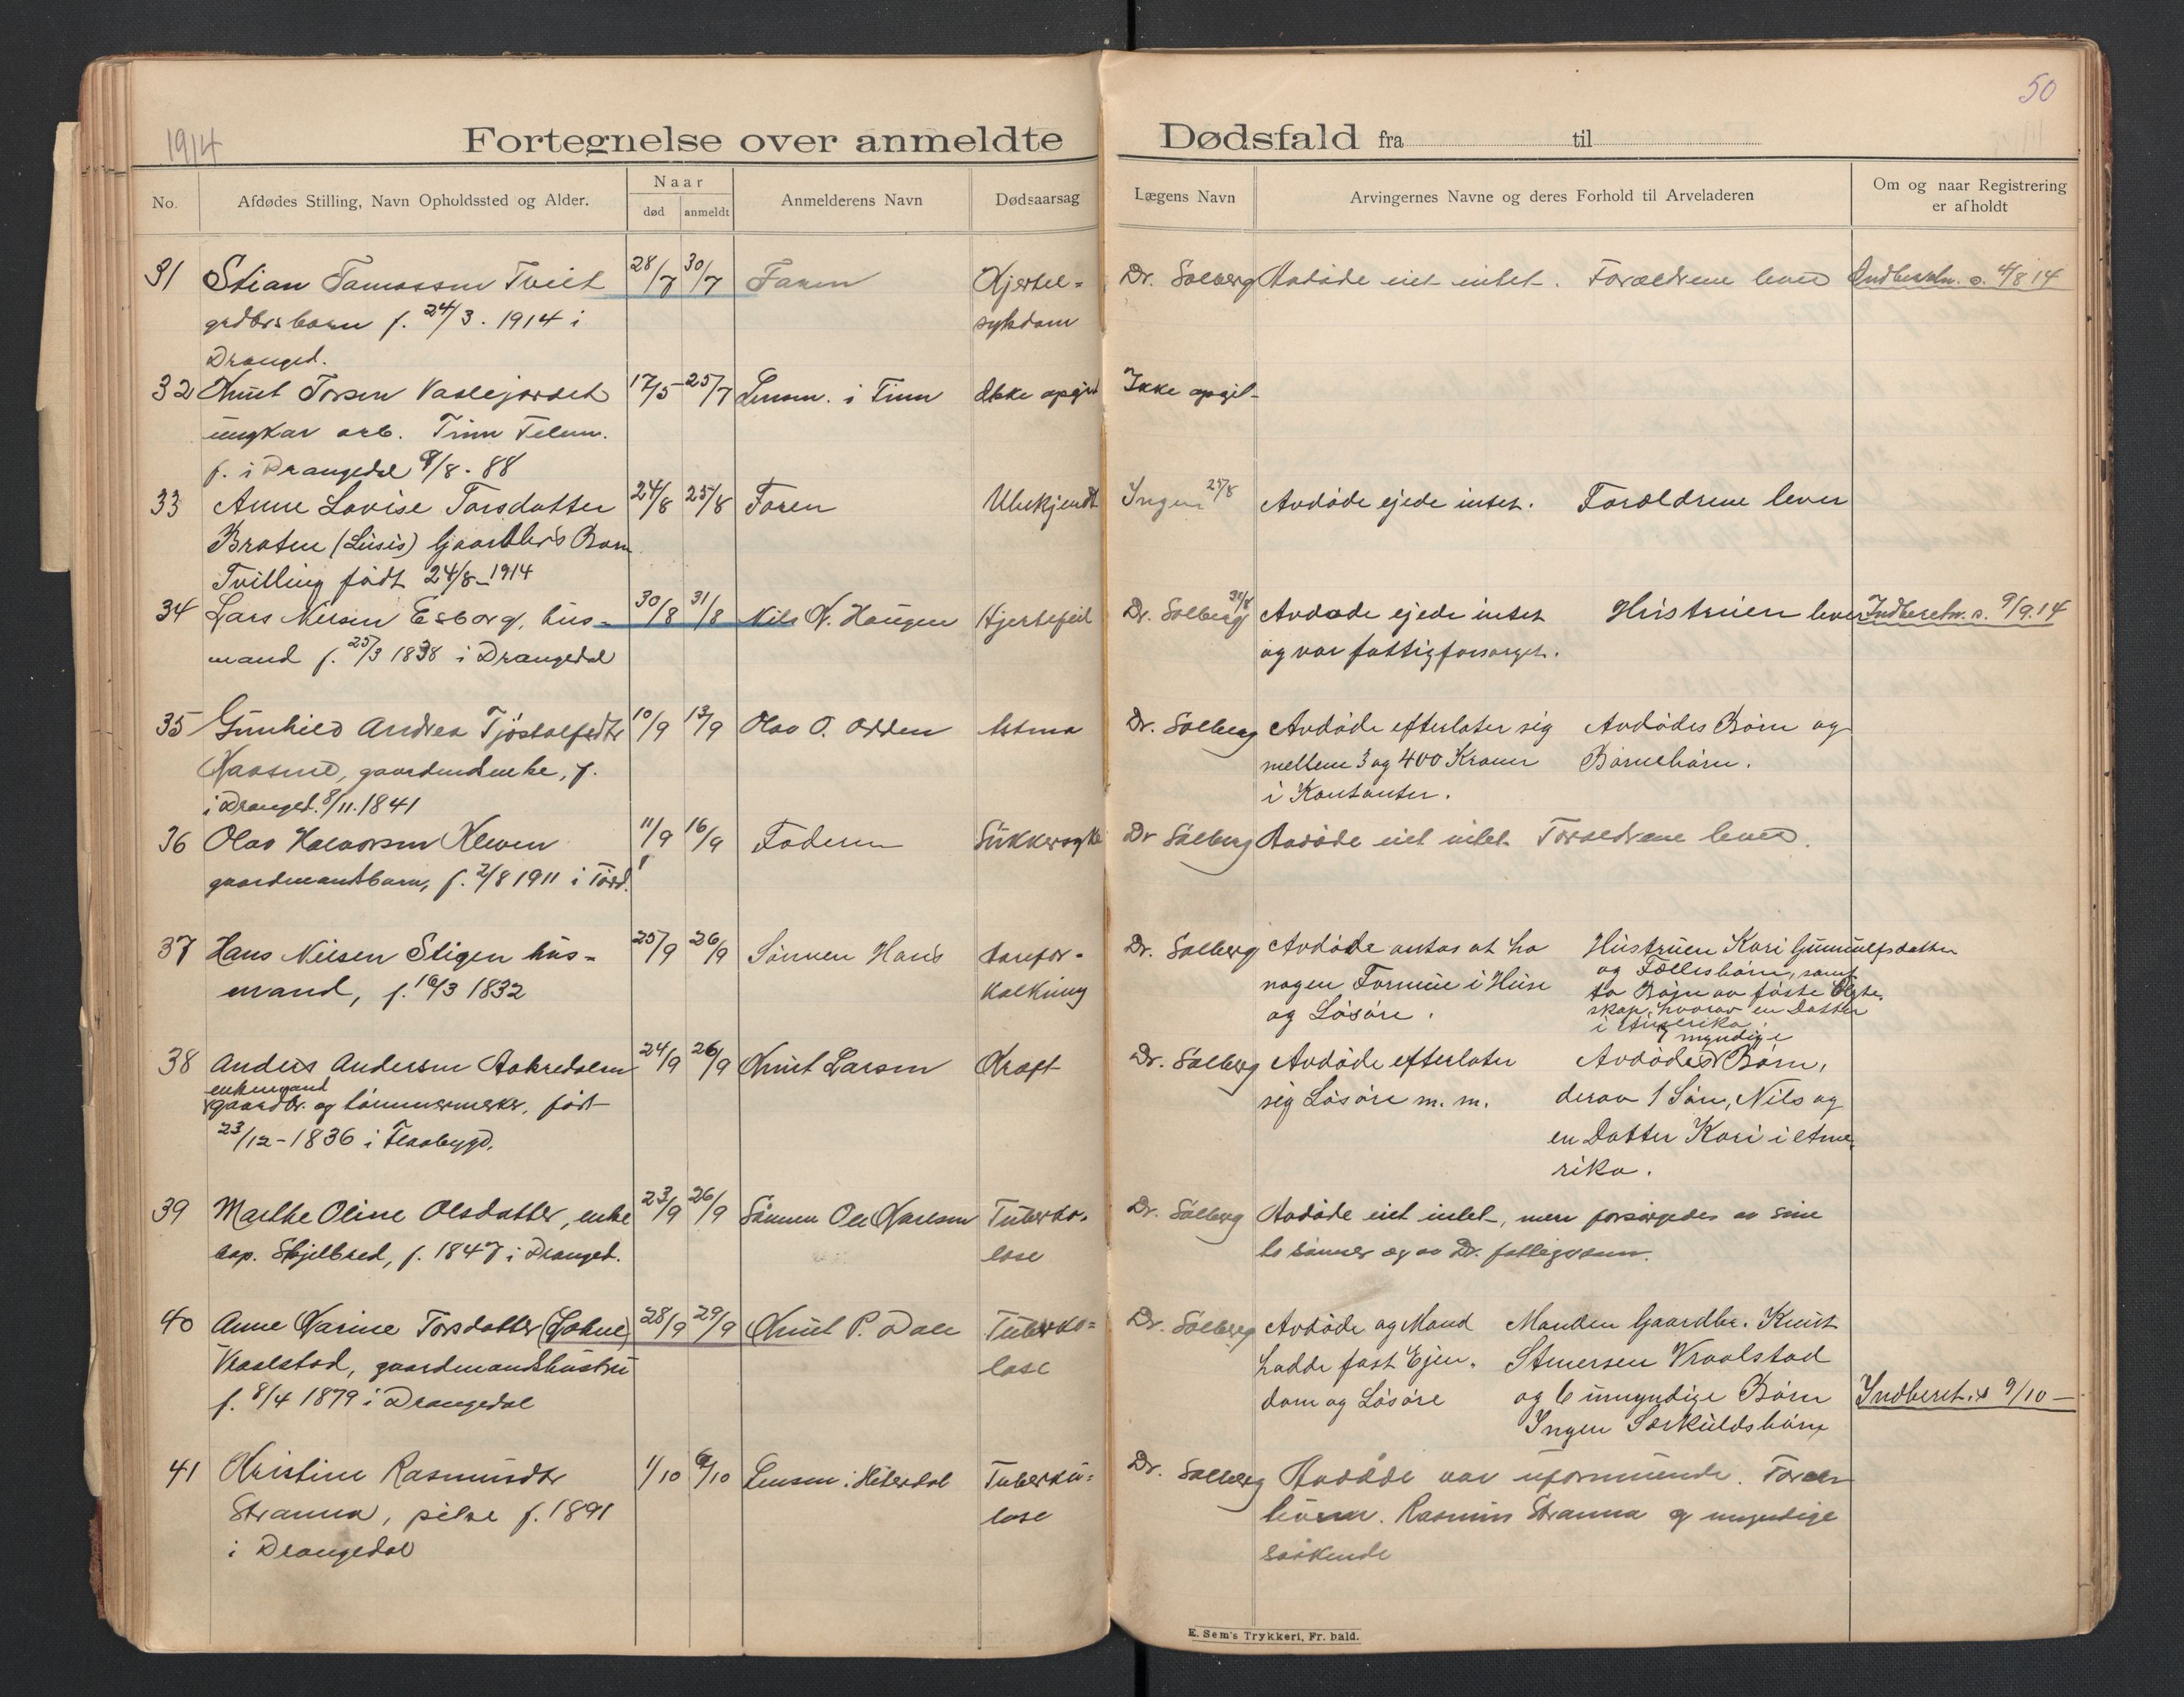 50
1914
Fortegnelse over anmeldte Dødsfald fra til
No.
Afdødes Stilling, Navn Opholdssted og Alder.
Naar
død
anmeldt
Anmelderens Navn
Dødsaarsag
Lægens Navn
Arvingernes Navne og deres Forhold til Arveladeren
Om og naar Registrering
er afholdt
31 Stian Tamassen Tveit 28/7 30/7 Faren Kjertel- Dr. Solberg Avdøde eiet intet. Forældrene lever Indberetn. s. 4/8 14
grdbrsbarn f. 24/3. 1914 i sykdom
Dranged.
32 Knut Torsen Vaslejordet 17/5 25/7 Lensm. i Tinn Ikke opgit Ikke opgit
ungkar arb. Tinn Telem.
f. i Drangedal 9/8. 88
33 Anne Lovise Torsdatter 24/8 25/8 Faren Ubekjendt Ingen 25/8 Avdøde ejede intet. Forældrene lever
Braten (Lusis) Gaardbr's Barn
Tvilling født 24/8-1914
34 Lars Nilsen Esborg, hus- 30/8 31/8 Nils N. Haugen Hjertefeil Dr. Solberg 31/8 Avdøde ejede intet Hustruen lever Indberetn. s. 9/9.14
mand f. 25/3 1838 i Drangedal og var fattigforsørget.
35 Gunhild Andrea Tjøstolfsdtr 10/9 12/9 Olav O. Odden Astma Dr. Solberg Avdøde efterlater sig Avdødes Børn og
Naasund, gaardmdenke, f. mellem 3 og 400 Kroner Børnebørn.
i Dranged. 8/11. 1841 i Kontanter.
36 Olav Halvorsen Kleven 11/9 16/9 Faderen Sukkersyke Dr Solberg Avdøde eiet intet. Forældrene lever.
gaardmandsbarn, f. 2/8 1911 i Tørd.
37 Hans Nilsen Stigen hus- 25/9 26/9 Sønnen Hans Aarefor- Dr. Solberg Avdøde antas at ha Hustruen Kari Gunnulfsdatter
mand, f. 16/3 1832 kalkning nogen Formue i Huse og Fællesbørn, samt
og Løsøre. to Børn av første Ægte-
skap, hvorav en Datter
i Amerika.
38 Anders Andersen Aakredalen 24/9 26/9 Knut Larsen Kræft Dr. Solberg Avdøde efterlater Avdødes 7 myndige Børn,
enkemand
gaardbr. og tømmermerker, født sig Løsøre m. m. derav 1 Søn, Nils og
23/12-1836 i Flaabygd. en Datter Kari i Ame-
rika.
39 Marthe Oline Olsdatter, enke 23/9 26/9 Sønnen Ole Karlsen Tuberko- Dr. Solberg Avdøde eiet intet, men forsørgedes av sine
bop. Skjelbred, f. 1847 i Dranged. lose to sønner og av Dr. fattigvæsen.
40 Anne Karine Torsdatter (Lohne) 28/9 29/9 Knut P. Dale Tuberko- Dr. Solberg Avdøde og Mand Manden Gaardbr. Knut
Vraalstad, gaardmandshustru lose hadde fast Ejen- Vraalstad
f. 8/4 1879 i Drangedal dom og Løsøre og 6 umyndige Børn Indberet. s 9/10 —
Ingen Særkuldsbørn
41 Kristine Rasmusdtr 1/10 6/10 Lensm. i Hiterdal Tuberku- Dr. Solberg Avdøde var uformuende. Foræl-
Stranna, pike f. 1891 lose Rasmus Stranna og umyndige
i Drangedal søskende
E. Sem's Trykkeri, Fr. hald.